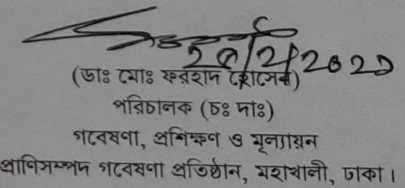 ২০/২/২০২০
(ডাঃ মোঃ ফরহাদ হোসেন)
পরিচালক (চঃ দাঃ)
গবেষণা, প্রশিক্ষণ ও মূল্যায়ন
প্রাণিসম্পদ গবেষণা প্রতিষ্ঠান, মহাখালী, ঢাকা।